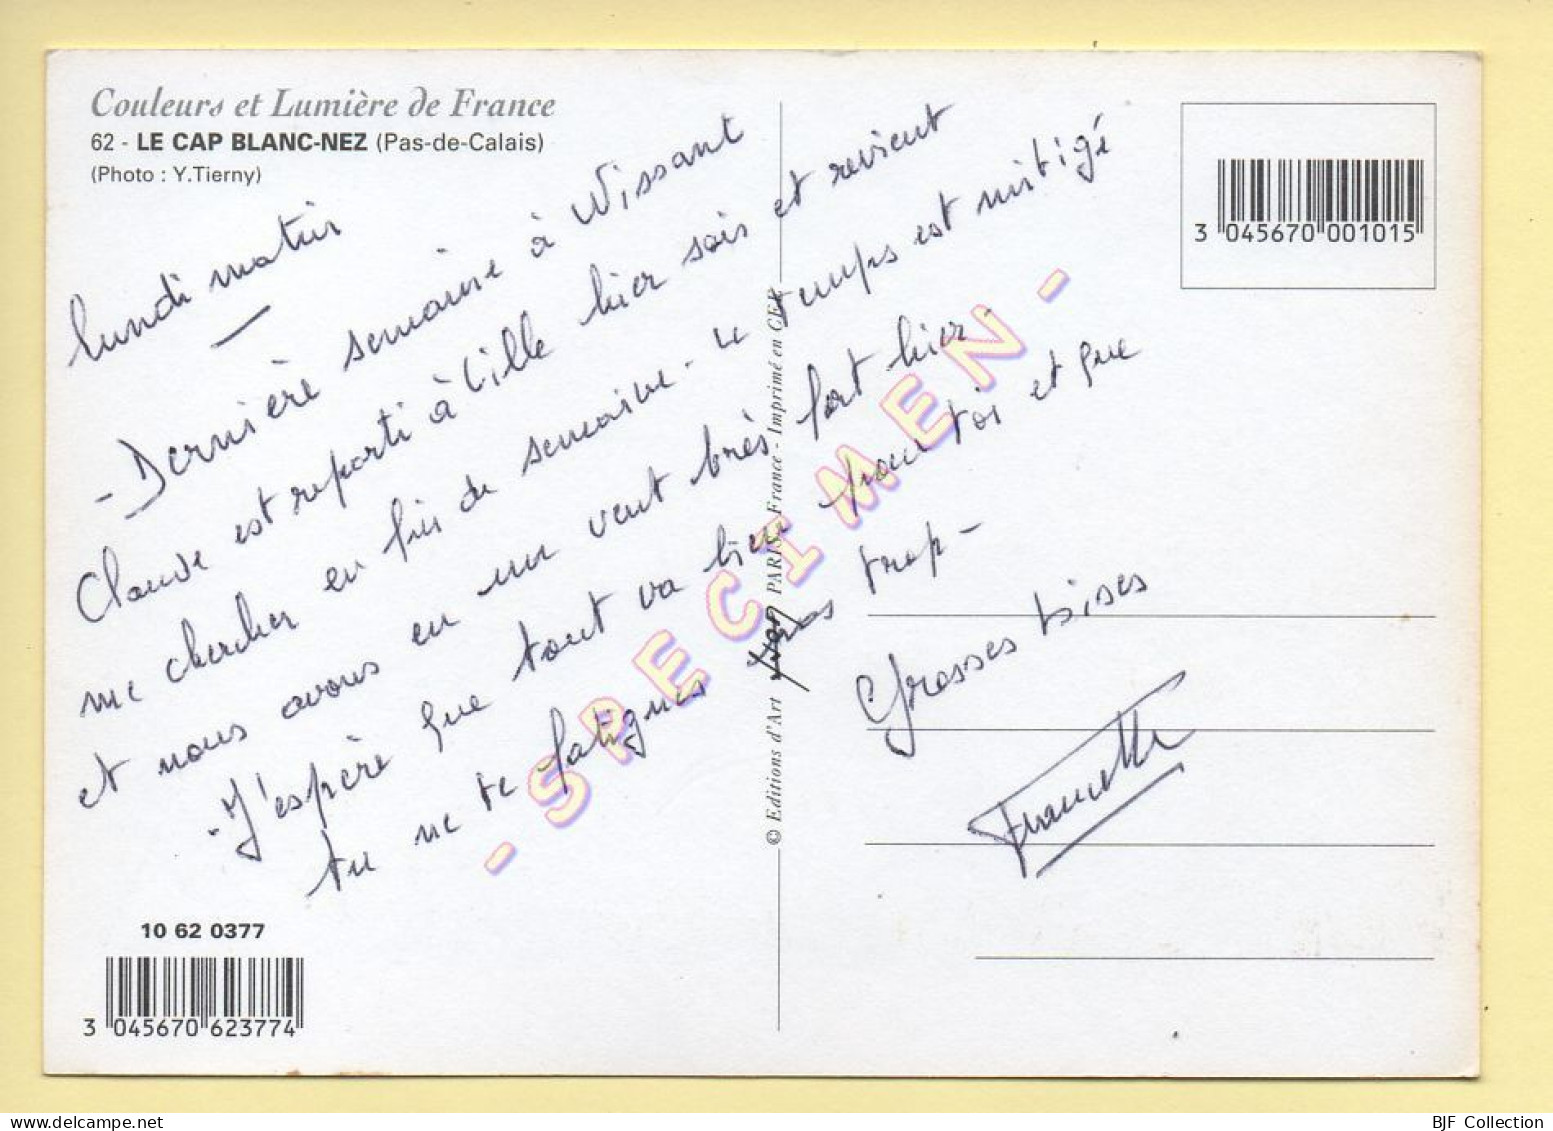 Couleurs et Lumière de France
62 - LE CAP BLANC-NEZ (Pas-de-Calais)
(Photo : Y.Tierny)
lundi matin
- Dernière semaine à Wissant
Claude est reparti à Lille hier soir et revient
me chercher en fin de semaine - Le temps est mitigé
et nous avons eu un vent très fort hier -
- J'espère que tout va bien pour toi et que
tu ne te fatigues pas trop -
Grosses bises
Francette
3 045670 001015
© Editions d'Art Yvon PARIS - France - Imprimé en CEE
- SPECIMEN -
10 62 0377
3 045670 623774
BJF Collection